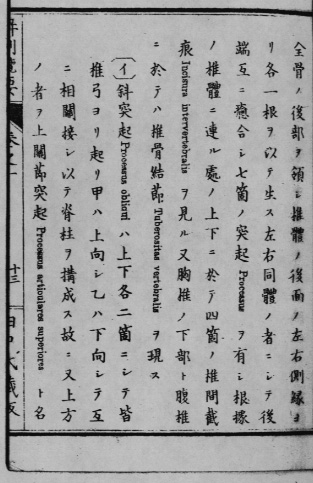 全骨ノ後部ヲ領シ椎體ノ後面ノ左右側縁ヨ
リ各一根ヲ以テ生ス左右同體ノ者ニシテ後
端互ニ癒合シ七箇ノ突起 Processus ヲ有シ根據
ノ椎體ニ連ル處ノ上下ニ於テ四箇ノ椎間截
痕 Incisura intervertebralis ヲ見ル又胸椎ノ下部ト腹椎
ニ於テハ椎骨結節 Tuberositas vertebralis ヲ現ス
(イ)斜突起 Processus obliqui ハ上下各二箇ニシテ皆
椎弓ヨリ起リ甲ハ上向シ乙ハ下向シテ互
ニ相關接シ以テ脊柱ヲ構成ス故ニ又上方
ノ者ヲ上關節突起 Processus articulares superiores ト名
十三
田口氏藏版